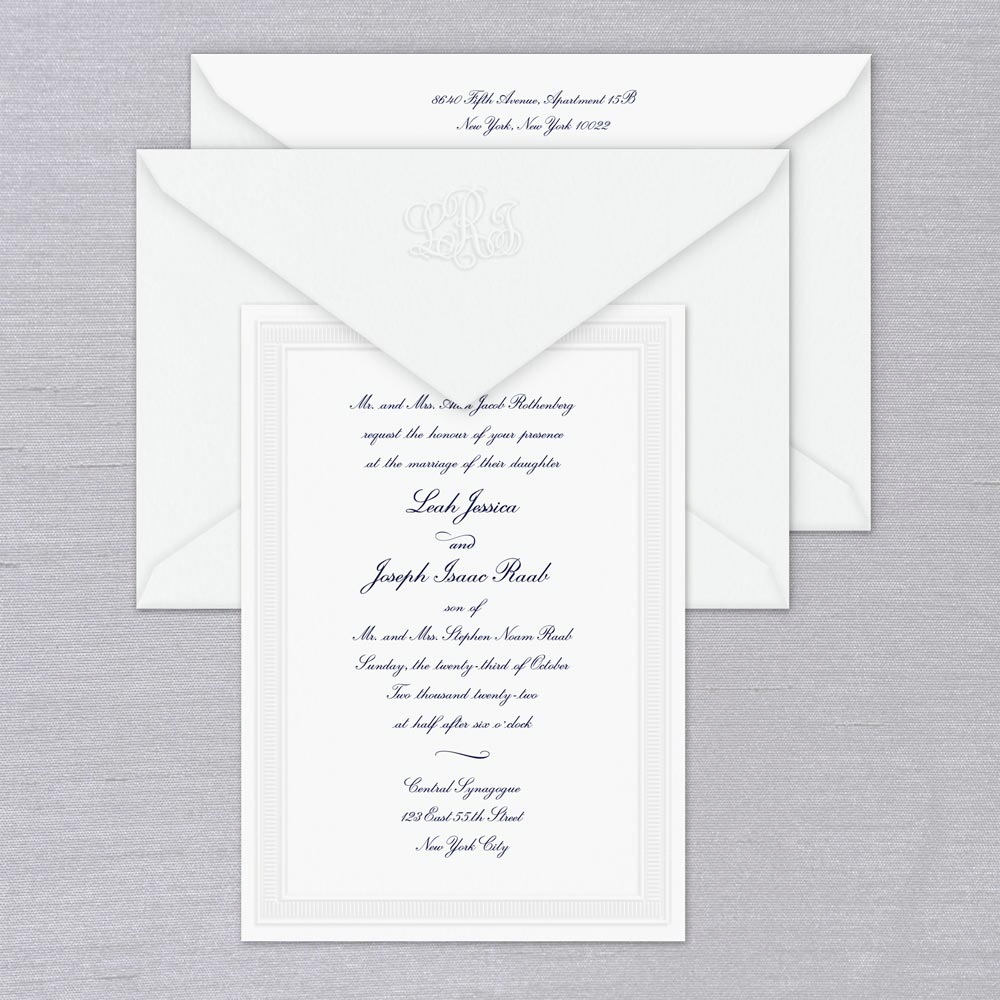 8640 Fifth Avenue, Apartment 15B
New York, New York 10022
LRJ
Mr. and Mrs. Jacob Rothenberg
request the honour of your presence
at the marriage of their daughter
Leah Jessica
and
Joseph Isaac Raab
son of
Mr. and Mrs. Stephen Noam Raab
Sunday, the twenty-third of October
Two thousand twenty-two
at half after six o'clock
Central Synagogue
123 East 55th Street
New York City